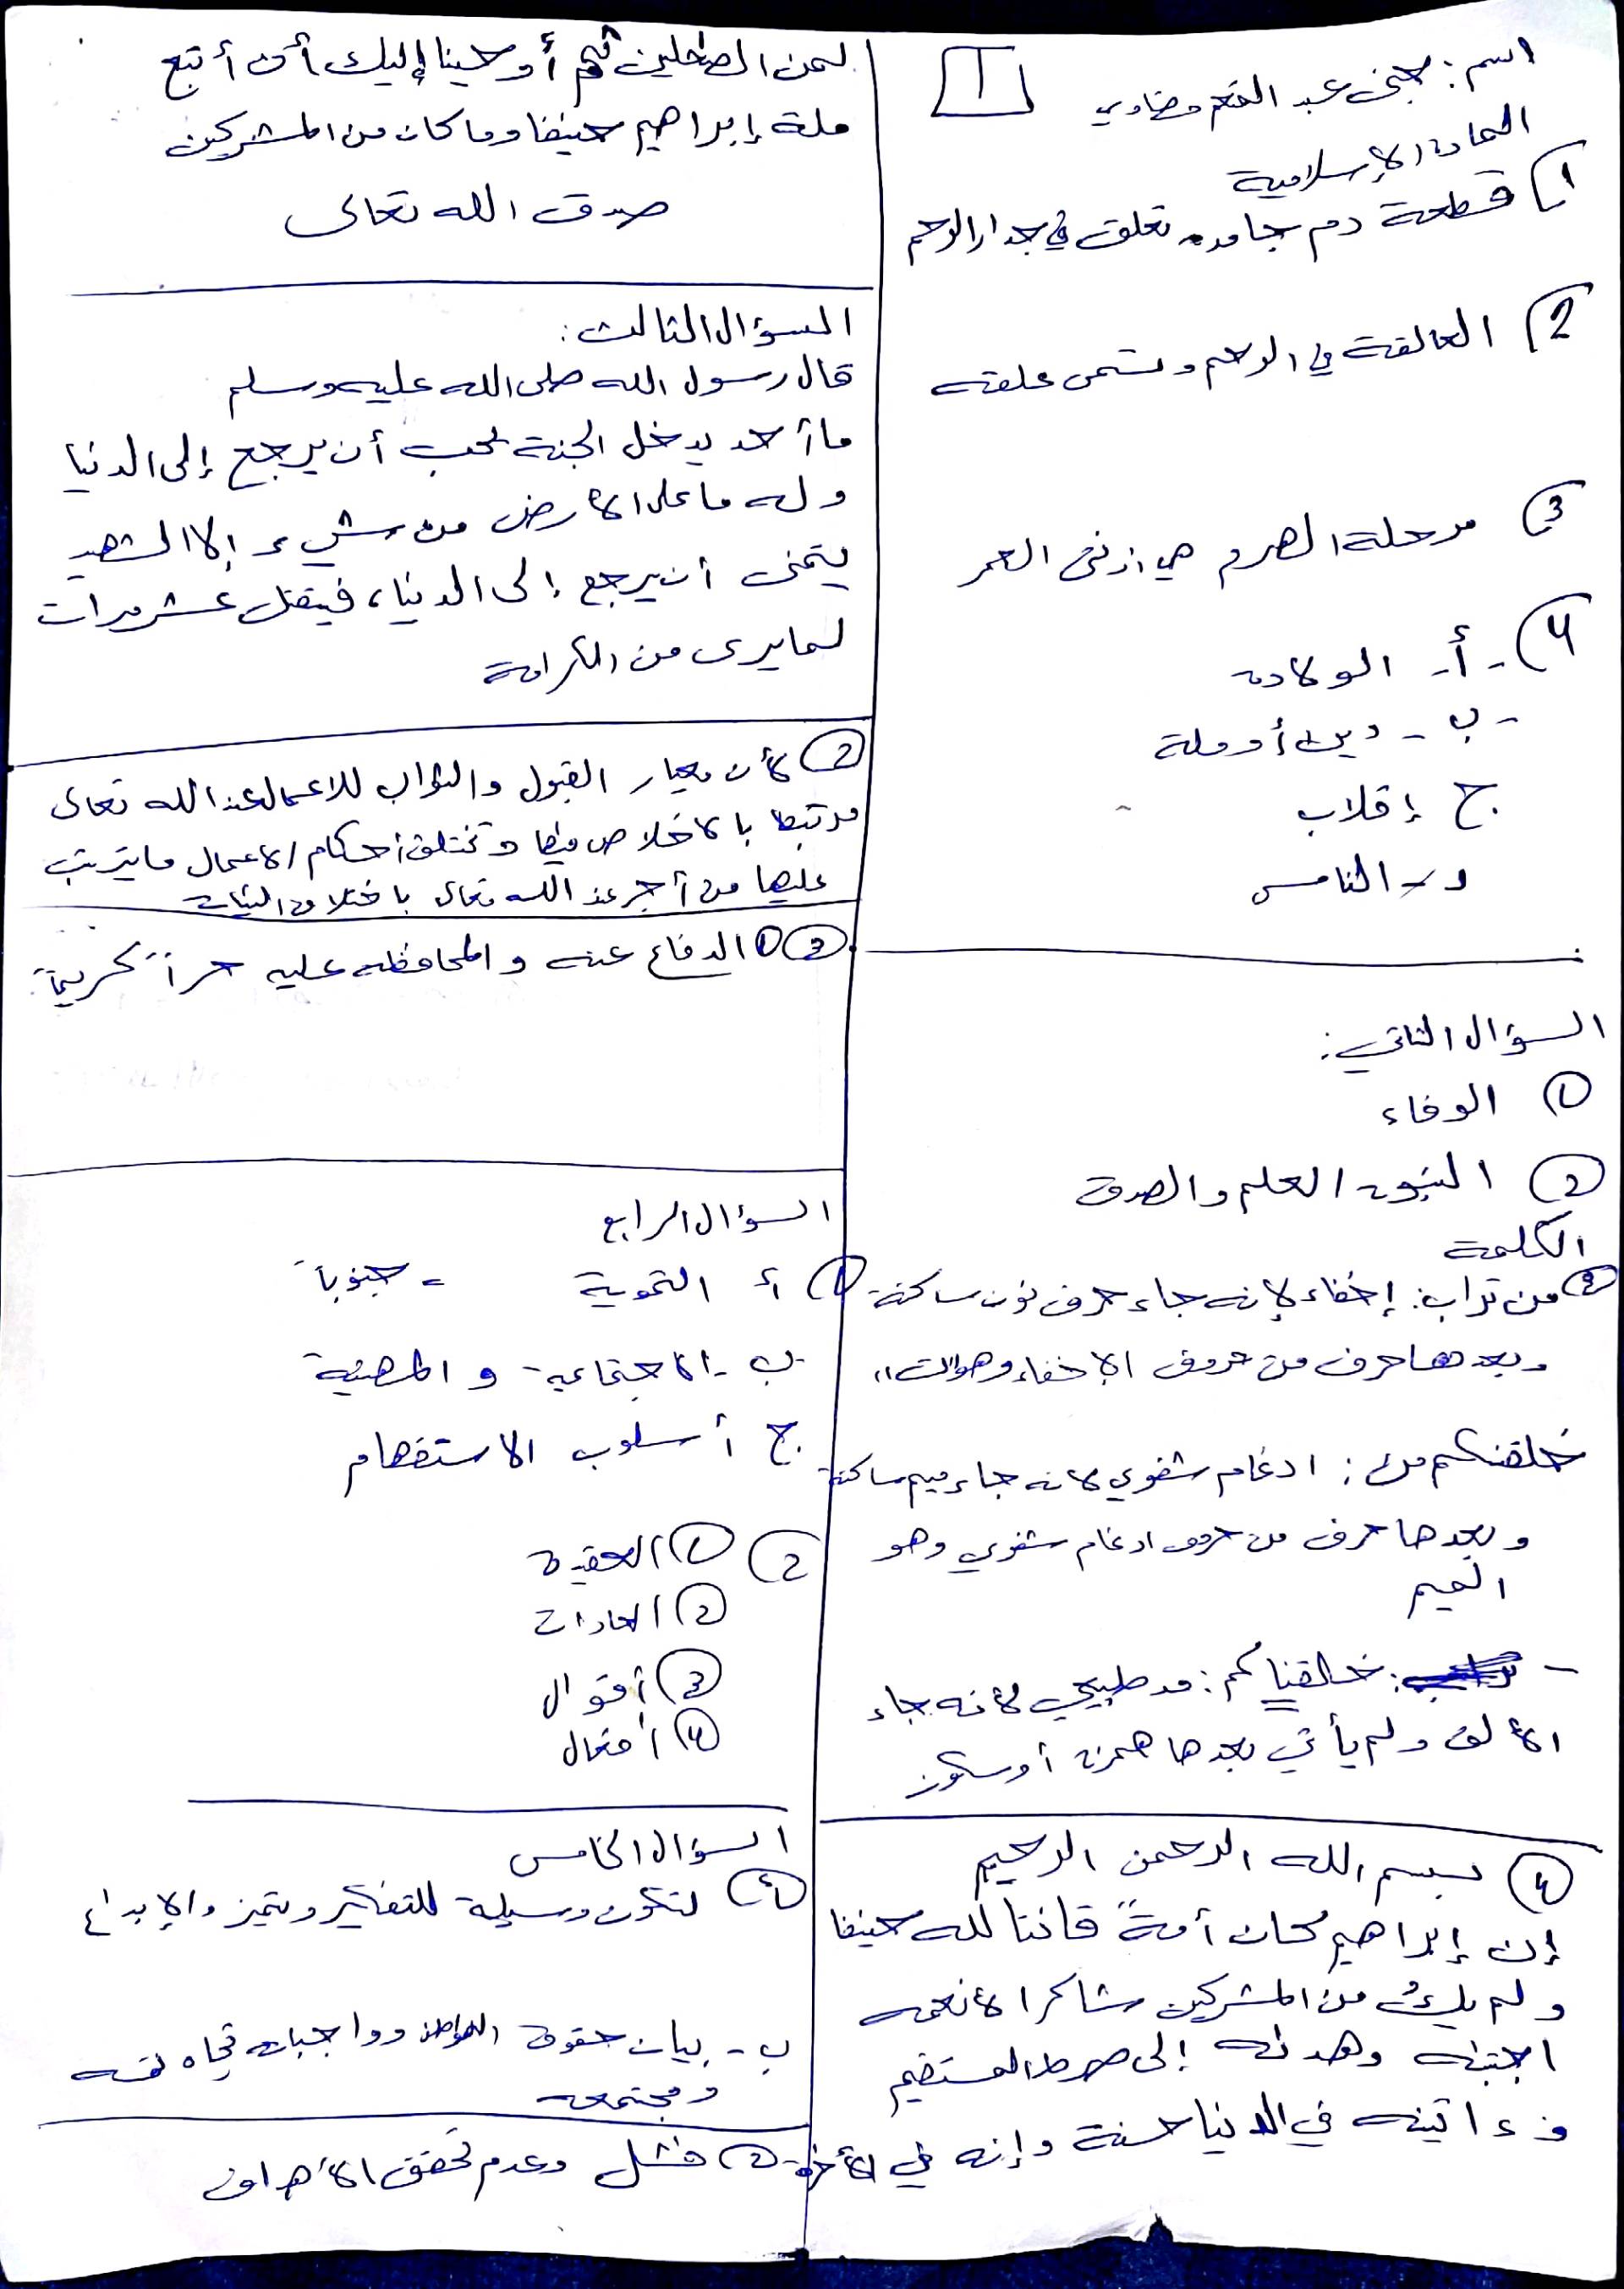 اسم: مجتبى عبد المنعم مضاوي
1
المادة الإسلامية
1) قطعة دم جامده تعلق في جدار الرحم
2) العالقة في الرحم وتسمى علقه
3) مرحلة الهرم هي ارذى العمر
4) - أ- الولادة
- ب - دين أو ملة
ج إقلاب
د - الخامس
السؤال الثاني:
1) الوفاء
2) النبوة العلم والصدق
الكلمة
3) من تراب: إخفاء لإنه جاء حرف نون ساكنة
وبعدها حرف من حروف الإخفاء وهو الت،،
خلقنكم من: ادغام شفوي لانه جاء ميم ساكنة
وبعدها حرف من حروف ادغام شفوي وهو
الميم
- خلقناكم: مد طبيعي لأنه جاء
الألف ولم يأتي بعدها همزة أو سكون
4) بسم الله الرحمن الرحيم
إن إبراهيم كان أمةً قانتا لله حنيفا
ولم يكُ من المشركين شاكرا لأنعمه
اجتبىه وهدىه إلى صرط المستقيم
وءاتينه في الدنيا حسنة وإنه في الأخرة
لمن الصلحين ثم أوحينا إليك أن أتبع
ملة إبراهيم حنيفا وما كان من المشركين
صدق الله تعالى
السؤال الثالث:
قال رسول الله صلى الله عليه وسلم
ما أحد يدخل الجنة يحب أن يرجع إلى الدنيا
وله ما على الأرض من شيء إلا الشهيد
يتمنى أن يرجع إلى الدنيا، فيقتل عشر مرات
لما يرى من الكرامة
2) لأن معيار القبول والثواب للاعمال عند الله تعالى
مرتبط بالاخلاص فيها وتختلف أحكام الاعمال ما يترتب
عليها من أجر عند الله تعالى باختلاف النيات
3) 1) الدفاع عنه والمحافظه عليه حراً كريماً
السؤال الرابع
1) أ التموية - جنوباً
ب - الاجتماعية والمهنية
ج أسلوب الاستفهام
2) 1) العقيدة
2) العادات
3) أقوال
4) أفعال
السؤال الخامس
أ) لتكون وسيلة للتفكير وتميز والإبداع
ب - بيان حقوق المواطن وواجباته تجاه نفسه
ومجتمعه
2) فشل وعدم تحقق الأهداف